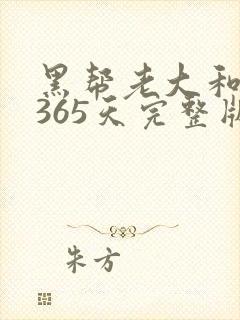 黑帮老大和
365天完整版
朱方